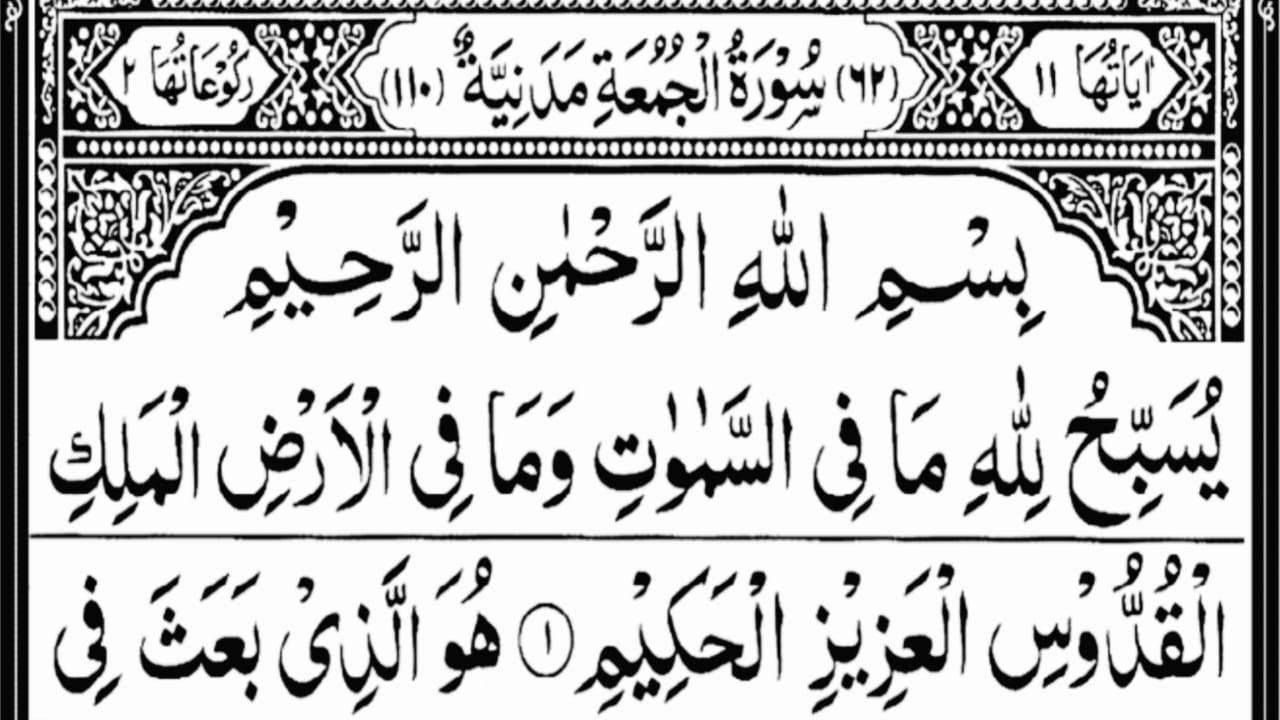 اٰيَاتُهَا ١١ (٦٢) سُوْرَةُ الْجُمُعَةِ مَدَنِيَّةٌ (١١٠) رُكُوْعَاتُهَا ٢
بِسْمِ اللّٰهِ الرَّحْمٰنِ الرَّحِيْمِ
يُسَبِّحُ لِلّٰهِ مَا فِى السَّمٰوٰتِ وَمَا فِى الْاَرْضِ الْمَلِكِ
الْقُدُّوْسِ الْعَزِيْزِ الْحَكِيْمِ ١ هُوَ الَّذِىْ بَعَثَ فِى